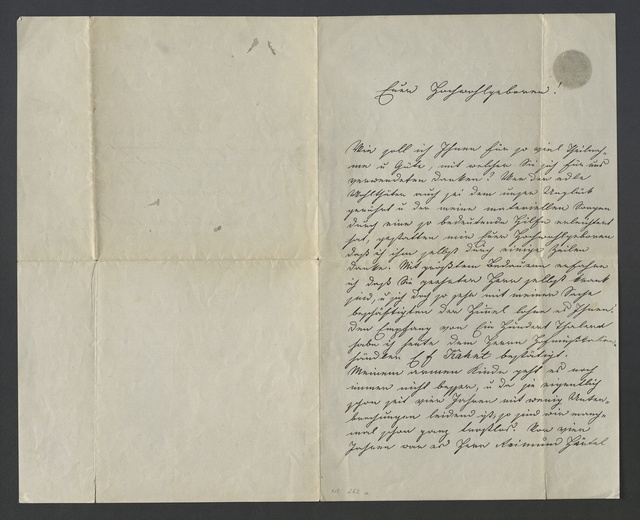 Euer Hochwohlgeboren!
Wie soll ich Ihnen für so viel Theilnah-
me u Güte, mit welcher Sie sich für uns
verwendeten danken? Wer der edle
Wohlthäter auch sei dem unser Unglük
gerührt u der meine materiellen Sorgen
durch eine so bedeutende Hülfe erleichtert
hat, gestatten mir Euer Hochwohlgeboren
daß ich ihm selbst durch einige Zeilen
danke. Mit größtem Bedauern erfahre
ich daß Sie geehrter Herr selbst krank
sind, u sich doch so sehr mit meiner Sache
beschäftigten der Himel lohne es Ihnen!
Den Empfang von Ein Hundert Thalern
habe ich heute dem Herrn Hofmusikalien-
händler C f Kahnt bestätigt.
Meinem armen Kinde geht es noch
immer nicht besser, u da sie eigentlich
schon seit vier Jahren mit wenig Unter-
brechungen leidend ist, so sind wir manch-
mal schon ganz trostlos! Vor vier
Jahren war es Herr Raimund Härtel